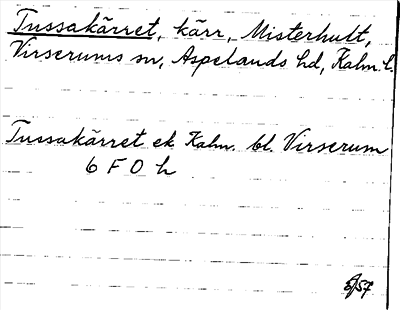 Tussakärret, kärr, Misterhult,
Virserums sn, Aspelands hd, Kalm. l.
Tussakärret ek Kalm. bl. Virserum
6 F 0 h
/57